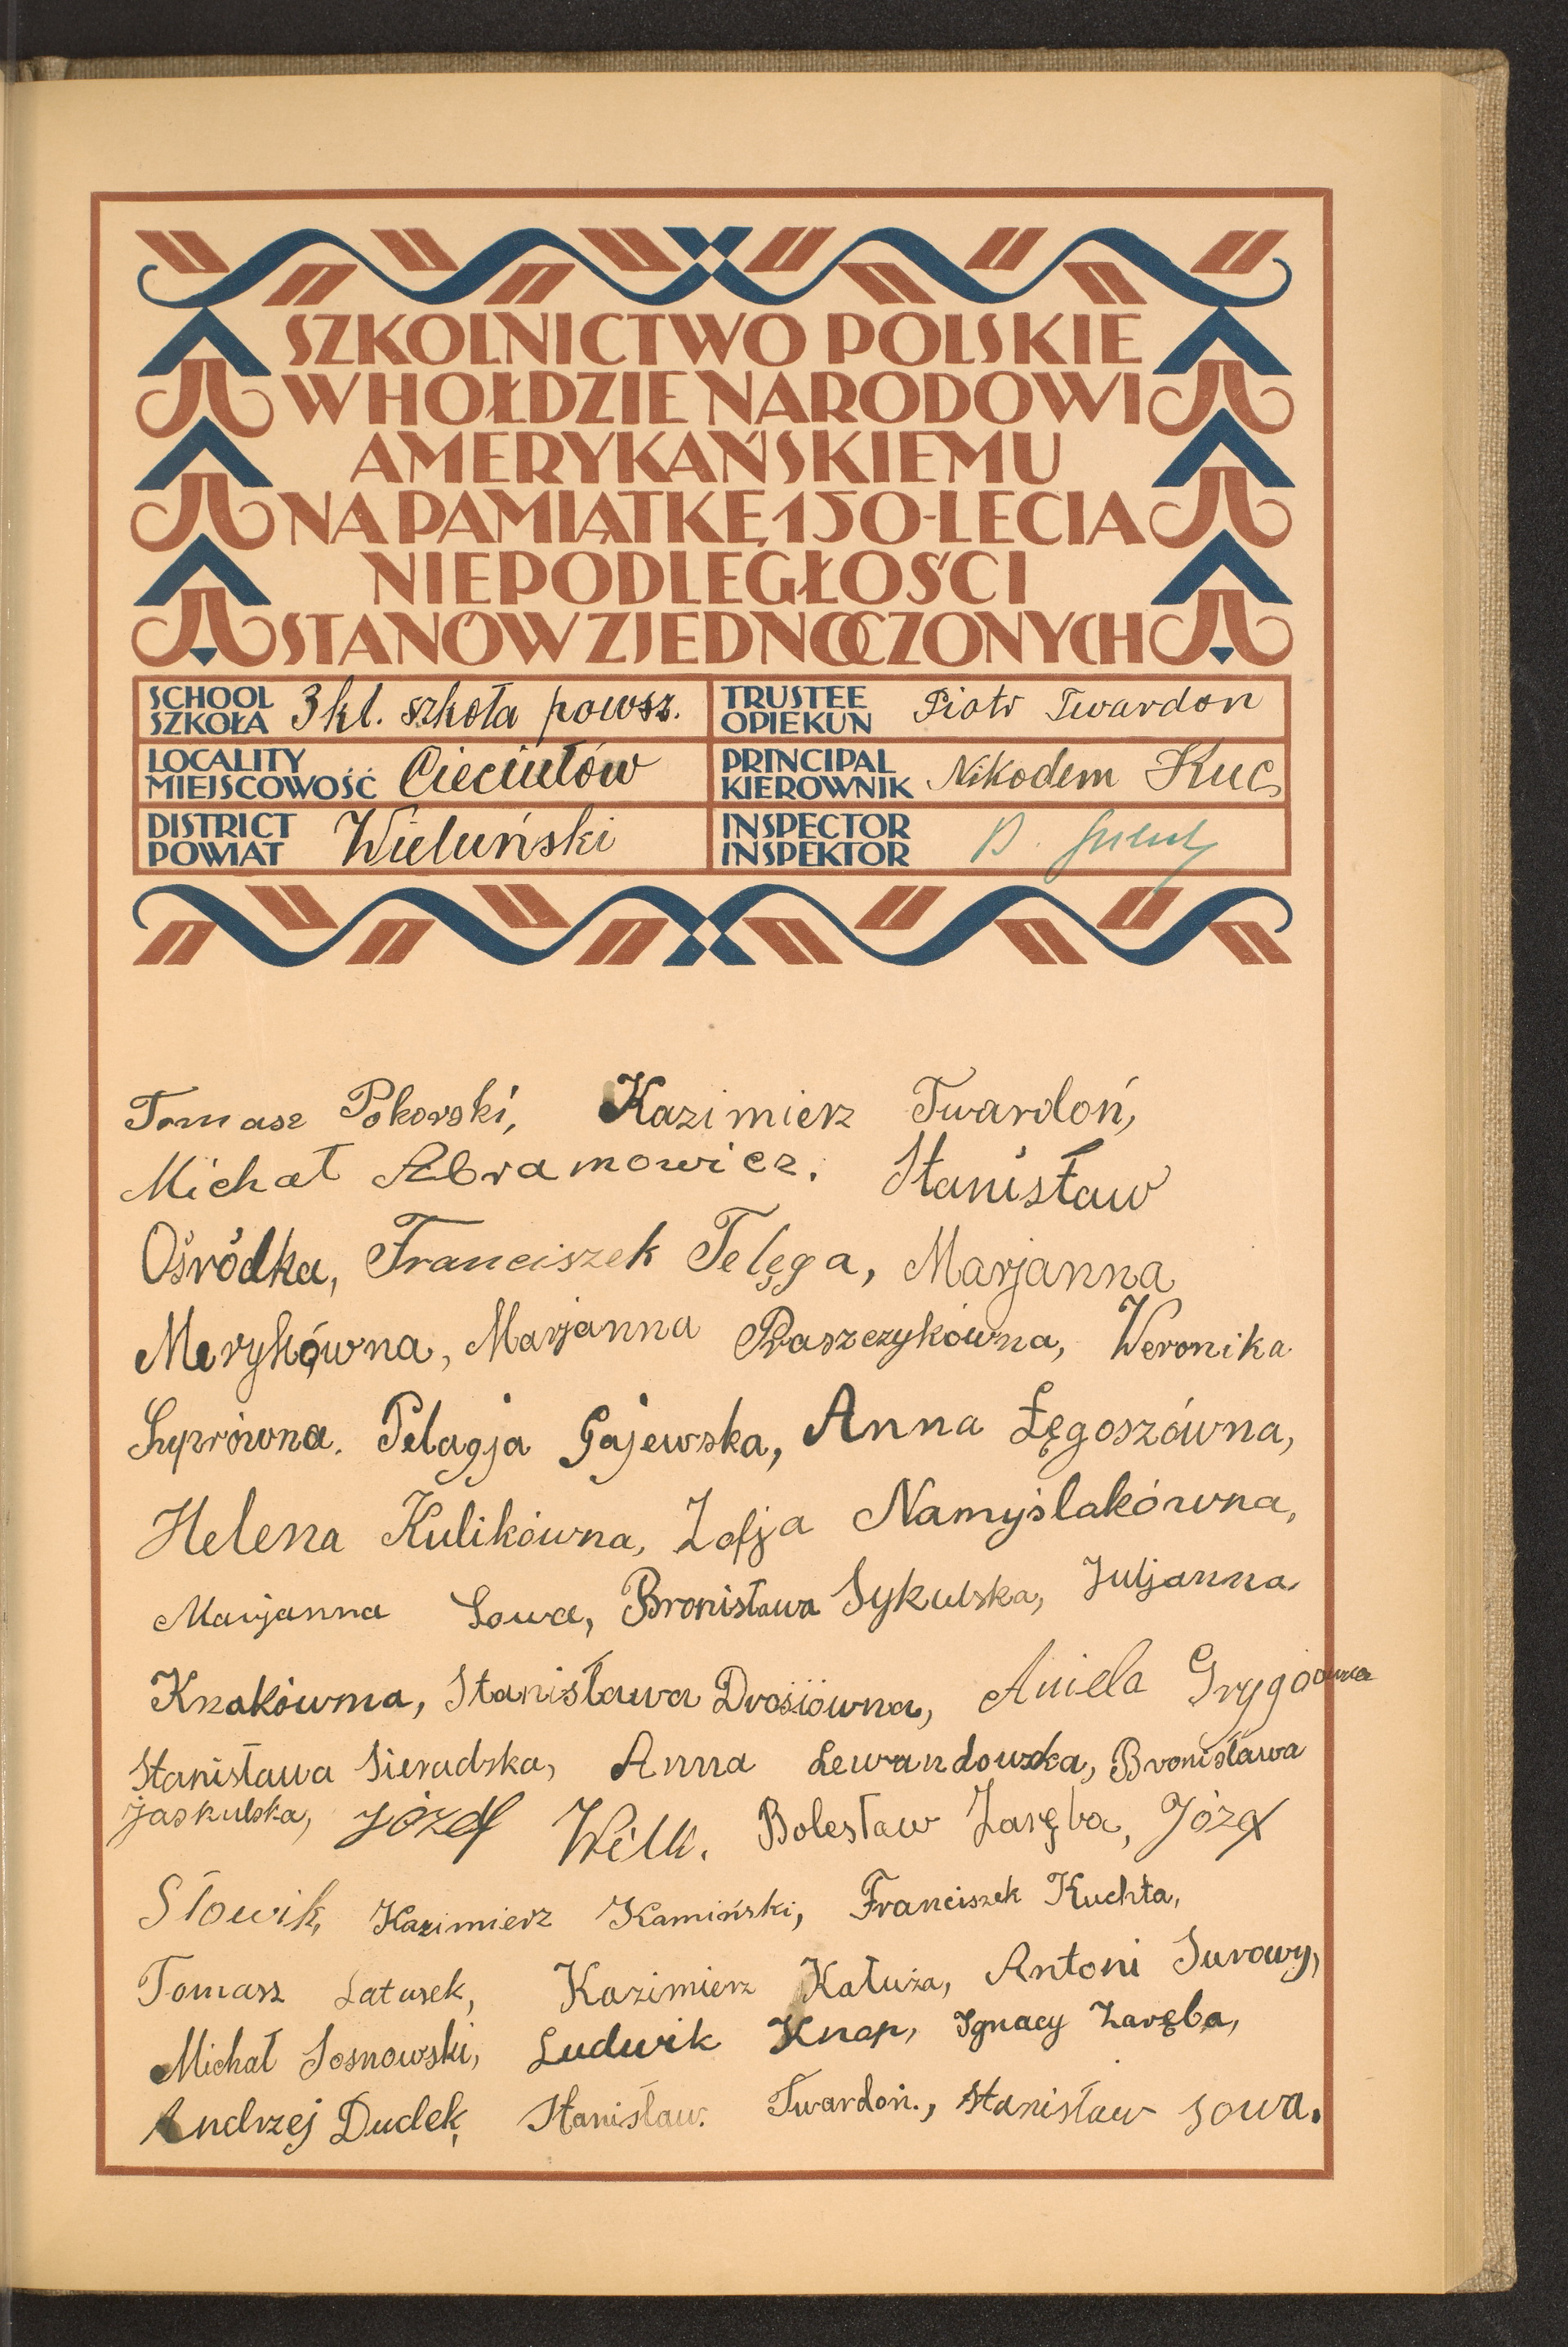 SZKOLNICTWO POLSKIE
W HOŁDZIE NARODOWI
AMERYKAŃSKIEMU
NA PAMIĄTKĘ 150-LECIA
NIEPODLEGŁOŚCI
STANÓW ZJEDNOCZONYCH
SCHOOL
SZKOŁA 3 kl. szkoła powsz.
TRUSTEE
OPIEKUN Piotr Twardon
LOCALITY
MIEJSCOWOŚĆ Cieciułów
PRINCIPAL
KIEROWNIK Nikodem Kuc
DISTRICT
POWIAT Wieluński
INSPECTOR
INSPEKTOR
Tomasz Pokorski, Kazimierz Twardoń,
Michał Abramowicz. Stanisław
Ośródka, Franciszek Telęga, Marjanna
Merykówna, Marjanna Praszczykówna, Weronika
Pelagja Gajewska, Anna Łęgoszówna,
Helena Kulikówna, Zofja Namyślakówna,
Marjanna Sowa, Bronisława Sykulska, Juljanna
Knakówna, Stanisława Drosiówna, Aniela Grygoówna
Stanisława Sieradzka, Anna Lewandowska, Bronisława
Jaskulska, Józef Wilk. Bolesław Zaręba, Józef
Słowik, Kazimierz Kamiński, Franciszek Kuchta,
Tomasz Latusek, Kazimierz Kałuża, Antoni Surowy,
Michał Sosnowski, Ludwik Knop, Ignacy Zaręba,
Andrzej Dudek, Stanisław. Twardoń., Stanisław Sowa.